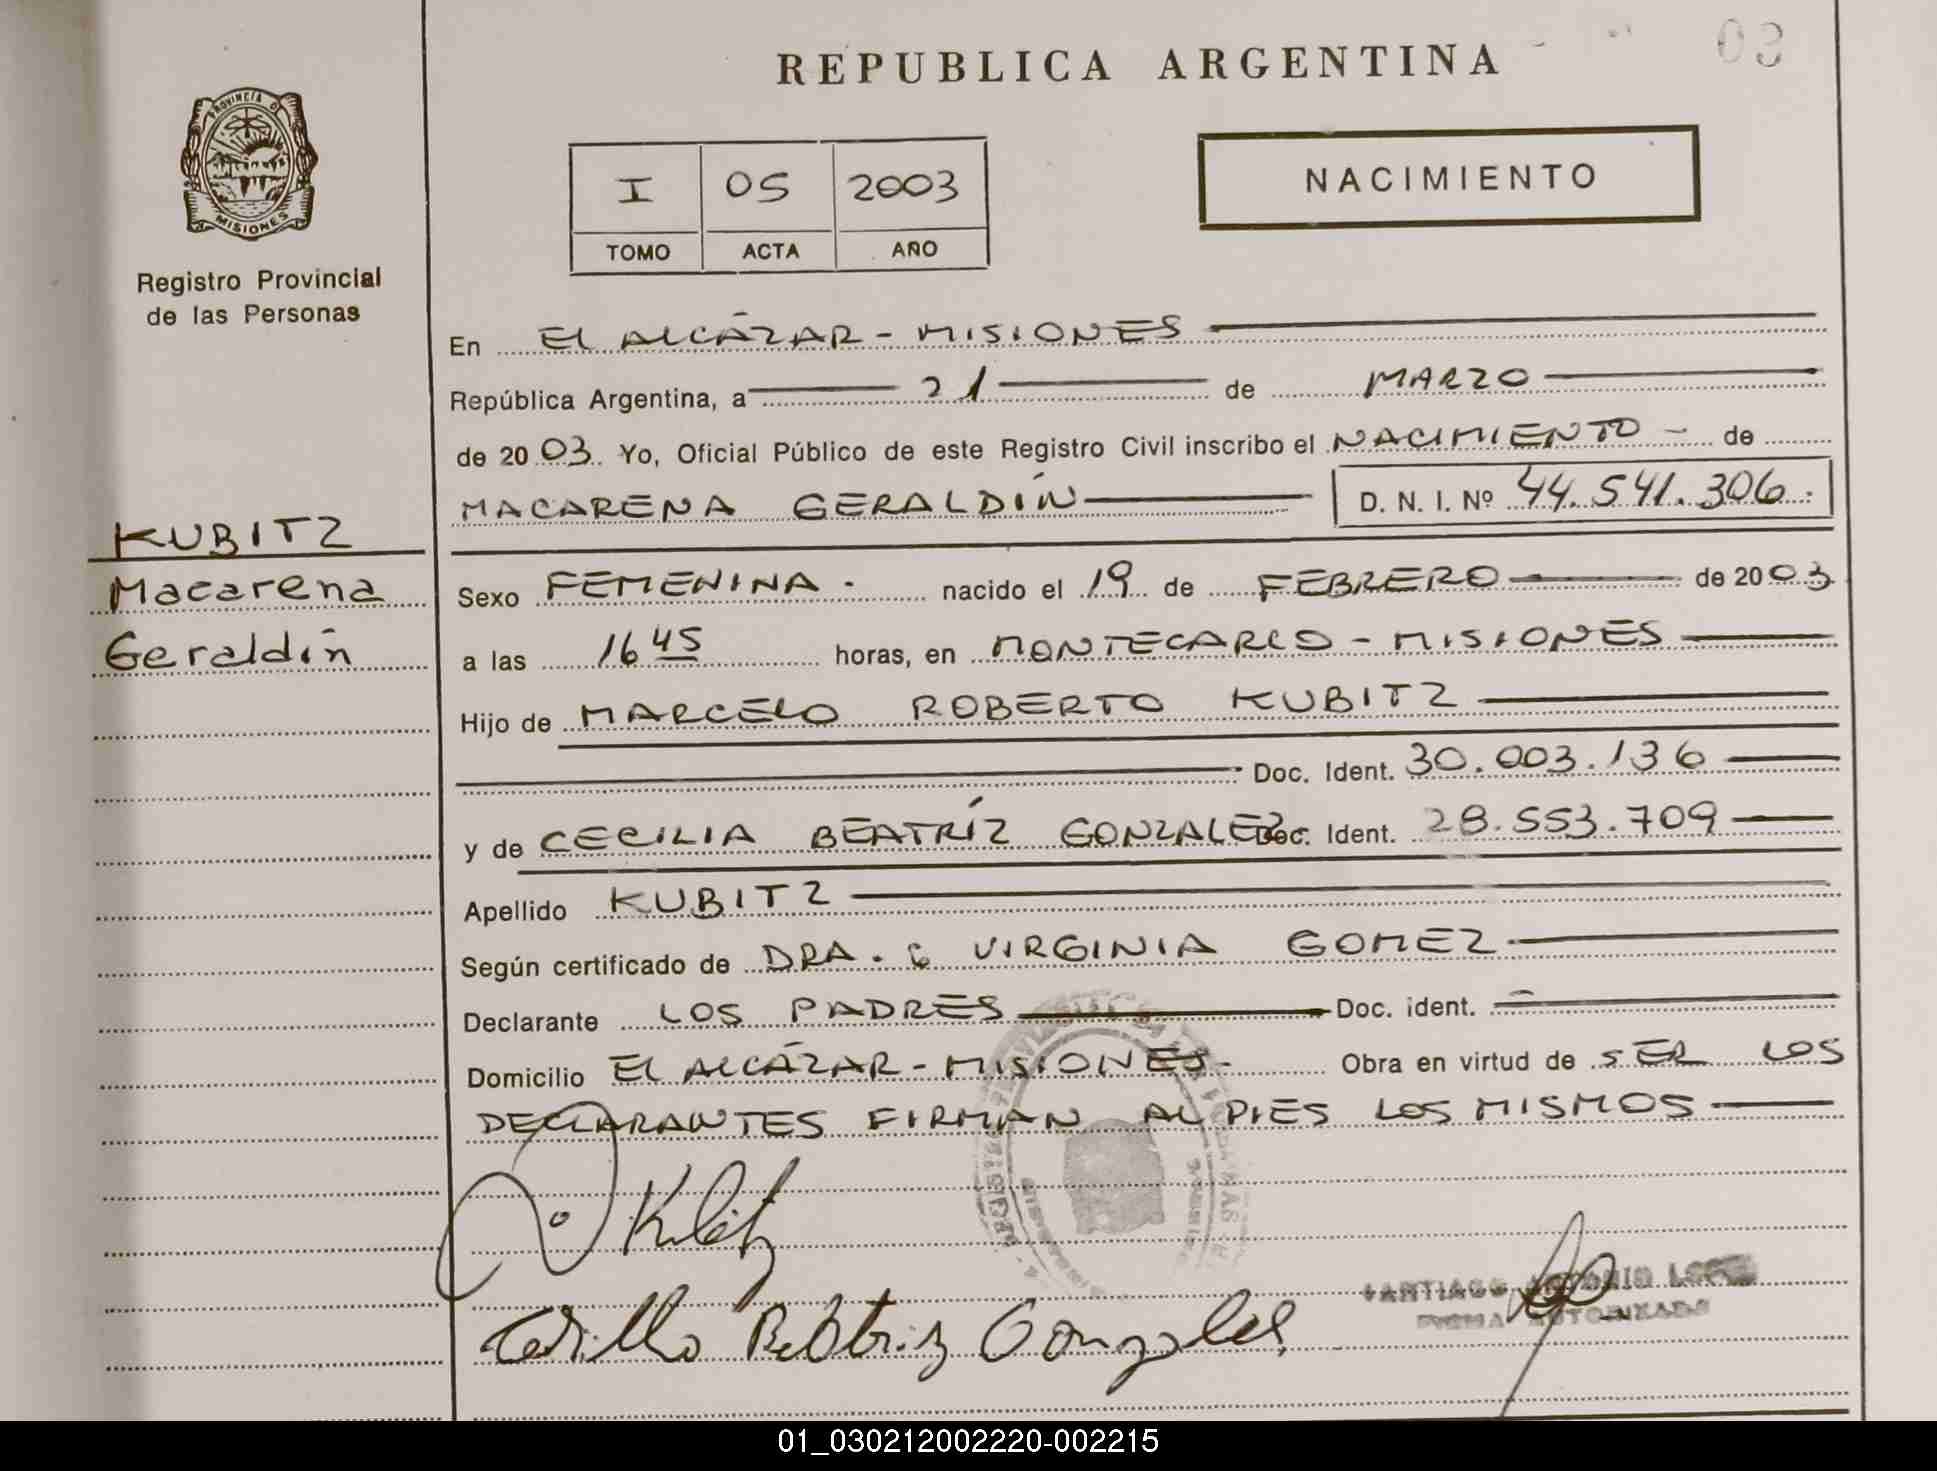 REPUBLICA ARGENTINA
03
PROVINCIA D
MISIONES
Registro Provincial
de las Personas
I 05 2003
TOMO ACTA AÑO
NACIMIENTO
En EL ALCÁZAR - MISIONES
República Argentina, a 21 de MARZO
de 2003 Yo, Oficial Público de este Registro Civil inscribo el NACIMIENTO - de
MACARENA GERALDÍN D. N. I. Nº 44.541.306
KUBITZ
Macarena
Geraldín
Sexo FEMENINA . nacido el 19 de FEBRERO de 2003
a las 16 45 horas, en MONTECARLO - MISIONES
Hijo de MARCELO ROBERTO KUBITZ
Doc. Ident. 30.003.136
y de CECILIA BEATRÍZ GONZALEZ Doc. Ident. 28.553.709
Apellido KUBITZ
Según certificado de DRA. VIRGINIA GOMEZ
Declarante LOS PADRES Doc. ident.
Domicilio EL ALCÁZAR - MISIONES - Obra en virtud de SER LOS
DECLARANTES FIRMAN AL PIES LOS MISMOS
Beatriz Gonzales
SANTIAGO ANTONIO
FIRMA AUTORIZADA
01_030212002220-002215